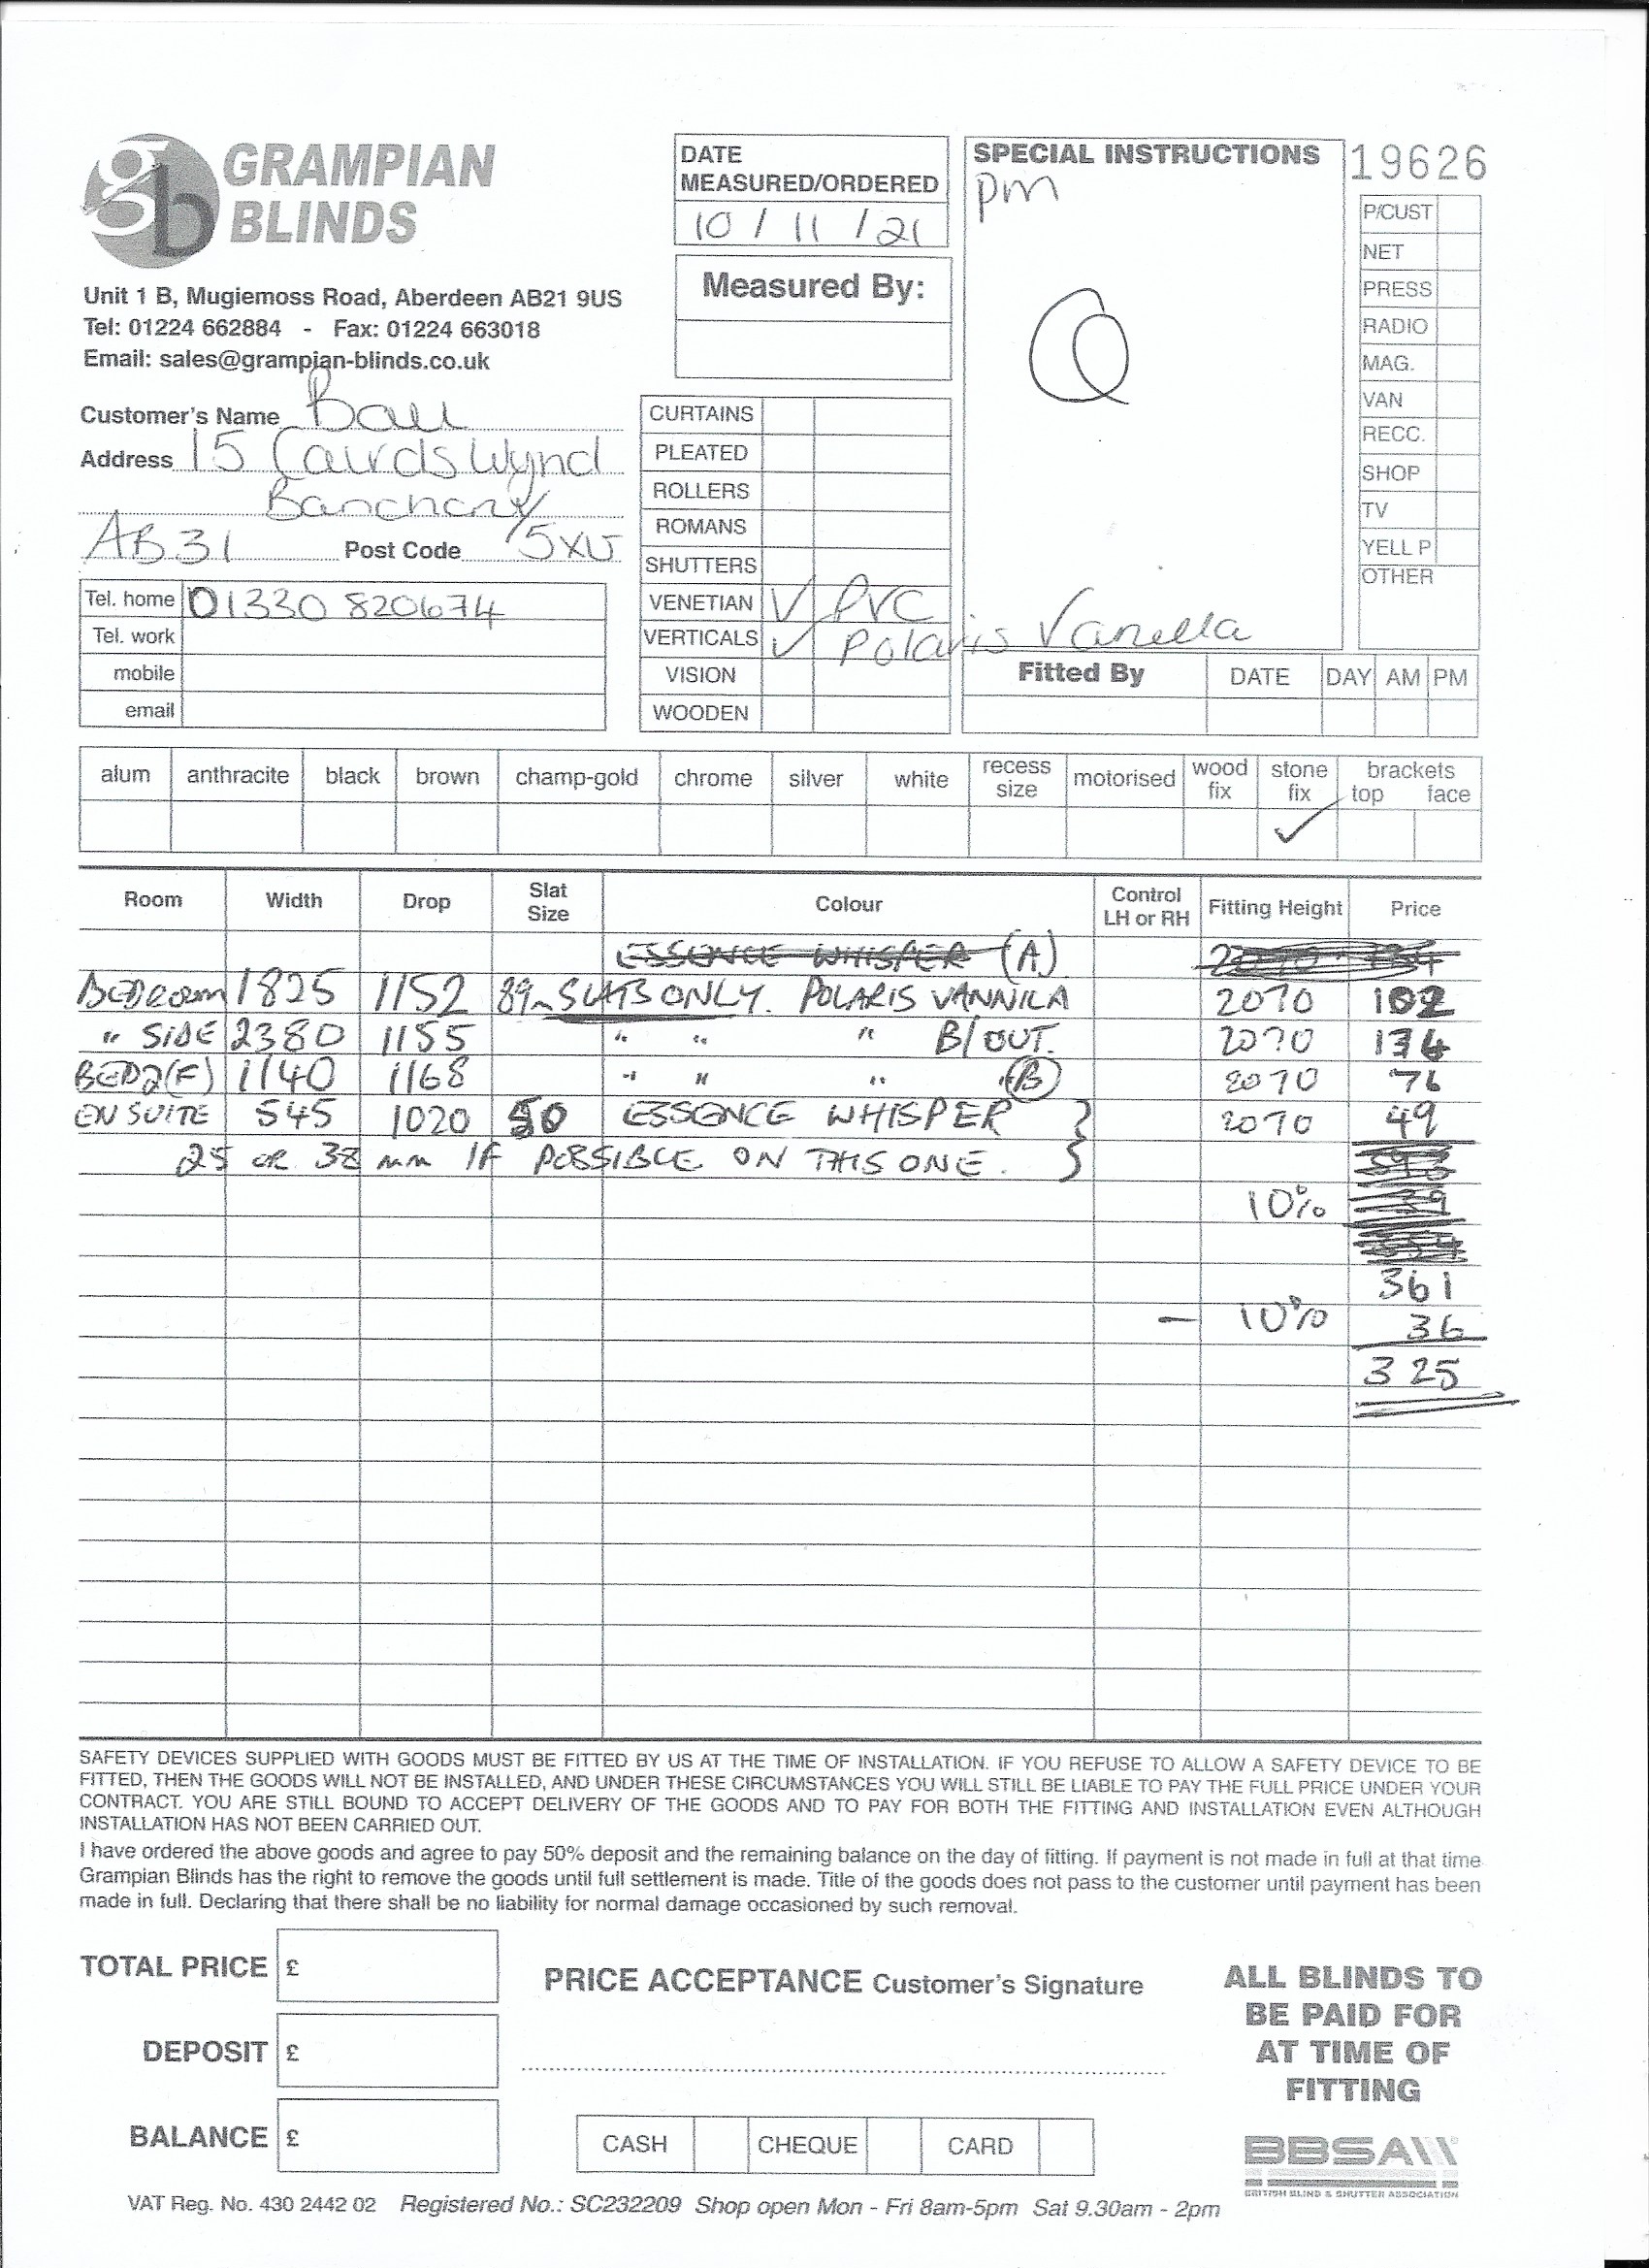 GRAMPIAN
BLINDS
Unit 1 B, Mugiemoss Road, Aberdeen AB21 9US
Tel: 01224 662884 - Fax: 01224 663018
Email: sales@grampian-blinds.co.uk
Customer's Name Ball
Address 15 Cairds Wynd
Banchory
AB31 Post Code 5XU
Tel. home 01330 820674
Tel. work
mobile
email
DATE
MEASURED/ORDERED
10 / 11 / 21
Measured By:
CURTAINS
PLEATED
ROLLERS
ROMANS
SHUTTERS
VENETIAN ✓ PVC
VERTICALS ✓ Polaris Vanella
VISION
WOODEN
SPECIAL INSTRUCTIONS
pm
19626
P/CUST
NET
PRESS
RADIO
MAG.
VAN
RECC.
SHOP
TV
YELL P
OTHER
Fitted By DATE DAY AM PM
alum anthracite black brown champ-gold chrome silver white recess size motorised wood fix stone fix brackets top face
✓
Room Width Drop Slat Size Colour Control LH or RH Fitting Height Price
ESSENCE WHISPER (A)
BEDROOM 1825 1152 89 SLATS ONLY. POLARIS VANNILA 2070 102
" SIDE 2380 1155 " " " B/OUT. 2070
BED2(F) 1140 1168 " " " (B) 2070 76
EN SUITE 545 1020 50 ESSENCE WHISPER } 2070 49
25 OR 38 mm IF POSSIBLE ON THIS ONE. }
10%
361
- 10% 36
325
SAFETY DEVICES SUPPLIED WITH GOODS MUST BE FITTED BY US AT THE TIME OF INSTALLATION. IF YOU REFUSE TO ALLOW A SAFETY DEVICE TO BE
FITTED, THEN THE GOODS WILL NOT BE INSTALLED, AND UNDER THESE CIRCUMSTANCES YOU WILL STILL BE LIABLE TO PAY THE FULL PRICE UNDER YOUR
CONTRACT. YOU ARE STILL BOUND TO ACCEPT DELIVERY OF THE GOODS AND TO PAY FOR BOTH THE FITTING AND INSTALLATION EVEN ALTHOUGH
INSTALLATION HAS NOT BEEN CARRIED OUT.
I have ordered the above goods and agree to pay 50% deposit and the remaining balance on the day of fitting. If payment is not made in full at that time
Grampian Blinds has the right to remove the goods until full settlement is made. Title of the goods does not pass to the customer until payment has been
made in full. Declaring that there shall be no liability for normal damage occasioned by such removal.
TOTAL PRICE £
DEPOSIT £
BALANCE £
PRICE ACCEPTANCE Customer's Signature
CASH CHEQUE CARD
ALL BLINDS TO
BE PAID FOR
AT TIME OF
FITTING
BBSA
BRITISH BLIND & SHUTTER ASSOCIATION
VAT Reg. No. 430 2442 02 Registered No.: SC232209 Shop open Mon - Fri 8am-5pm Sat 9.30am - 2pm